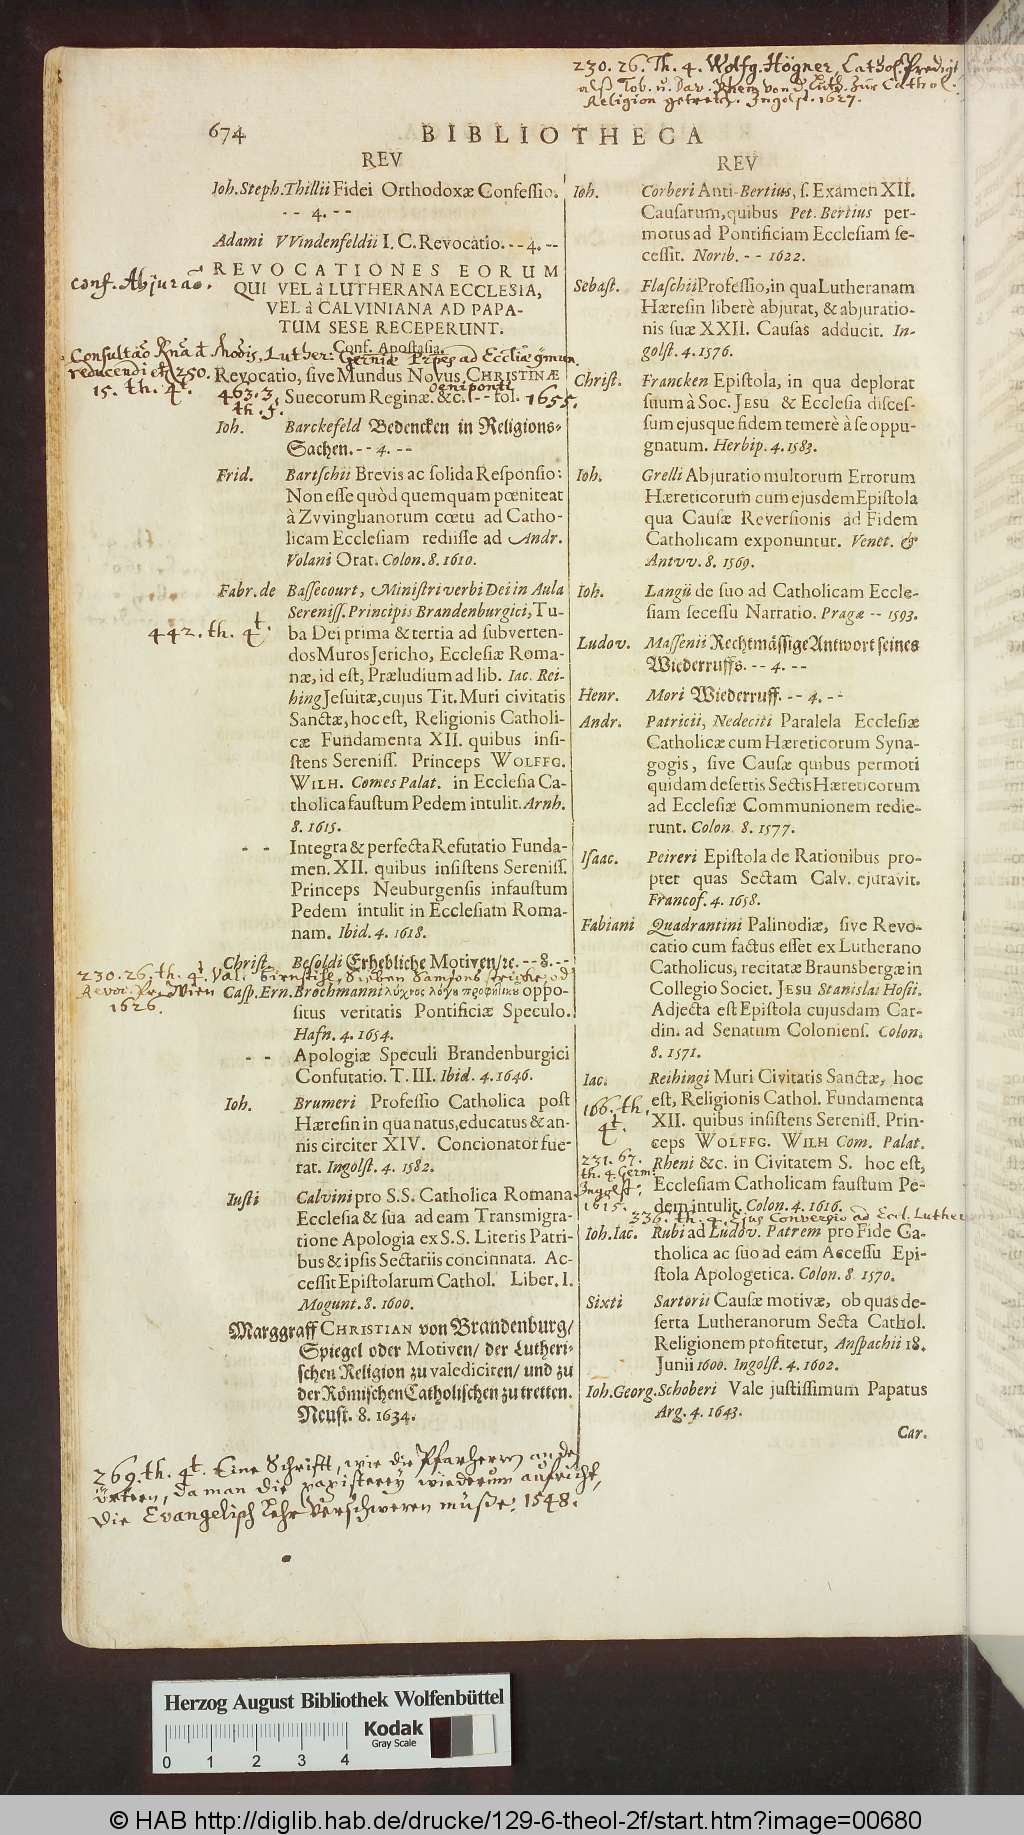 230. 26. Th. 4. Wolfg. Högner, Cathol. Predigt
alß Tob. u. Dav. Rhem von d. Luth. zur Cathol.
Religion getretẽ. Ingolst. 1627.
674 BIBLIOTHECA
REV
Ioh. Steph. Thillii Fidei Orthodoxæ Confessio.
-- 4. --
Adami VVindenfeldii I. C. Revocatio. -- 4. --
conf. Abjurão.
REVOCATIONES EORUM
QUI VEL à LUTHERANA ECCLESIA,
VEL à CALVINIANA AD PAPA-
TUM SESE RECEPERUNT.
Conf. Apostasia.
Revocatio, sive Mundus Novus CHRISTINÆ
Oeniponti
Suecorum Reginæ. &c. -- fol. 1655.
15. th. 4t.
463. 3.
th. 5.
Ioh. Barckefeld Bedencken in Religions-
Sachen. -- 4. --
Frid. Bartschii Brevis ac solida Responsio:
Non esse quòd quemquam pœniteat
à Zvvinglianorum cœtu ad Catho-
licam Ecclesiam rediisse ad Andr.
Volani Orat. Colon. 8. 1610.
Fabr. de Bassecourt, Ministri verbi Dei in Aula
Sereniss. Principis Brandenburgici, Tu-
442. th. 4t.
ba Dei prima & tertia ad subverten-
dos Muros Jericho, Ecclesiæ Roma-
næ, id est, Præludium ad lib. Iac. Rei-
hing Jesuitæ, cujus Tit. Muri civitatis
Sanctæ, hoc est, Religionis Catholi-
cæ Fundamenta XII. quibus insi-
stens Sereniss. Princeps WOLFFG.
WILH. Comes Palat. in Ecclesia Ca-
tholica faustum Pedem intulit. Arnh.
8. 1615.
-- Integra & perfecta Refutatio Funda-
men. XII. quibus insistens Sereniss.
Princeps Neuburgensis infaustum
Pedem intulit in Ecclesiam Roma-
nam. Ibid. 4. 1618.
Christ. Besoldi Erhebliche Motiven/ ꝛc. -- 8. --
230. 26. th. 4t. Val.
1626.
Casp. Ern. Brochmanni λύχνος λόγου προφητικοῦ oppo-
situs veritatis Pontificiæ Speculo.
Hafn. 4. 1654.
-- Apologiæ Speculi Brandenburgici
Confutatio. T. III. Ibid. 4. 1646.
Ioh. Brumeri Professio Catholica post
Hæresin in qua natus, educatus & an-
nis circiter XIV. Concionator fue-
rat. Ingolst. 4. 1582.
Iusti Calvini pro S. S. Catholica Romana
Ecclesia & sua ad eam Transmigra-
tione Apologia ex S. S. Literis Patri-
bus & ipsis Sectariis concinnata. Ac-
cessit Epistolarum Cathol. Liber. I.
Mogunt. 8. 1600.
Marggraff CHRISTIAN von Brandenburg/
Spiegel oder Motiven/ der Lutheri-
schen Religion zu valediciren/ und zu
der Römischen Catholischen zu tretten.
Neust. 8. 1634.
269. th. 4t. Eine Schrifft, wie die Pfarherrn an dẽ
örtern, da man die papisterey wiederum aufricht,
die Evangelisch Lehr verschweren müße. 1548.
REV
Ioh. Corberi Anti-Bertius, s. Examen XII.
Causarum, quibus Pet. Bertius per-
motus ad Pontificiam Ecclesiam se-
cessit. Norib. -- 1622.
Sebast. Flaschii Professio, in qua Lutheranam
Hæresin liberè abjurat, & abjuratio-
nis suæ XXII. Causas adducit. In-
golst. 4. 1576.
Christ. Francken Epistola, in qua deplorat
suum à Soc. JESU & Ecclesia disces-
sum ejusque fidem temerè à se oppu-
gnatum. Herbip. 4. 1583.
Ioh. Grelli Abjuratio multorum Errorum
Hæreticorum cum ejusdem Epistola
qua Causæ Reversionis ad Fidem
Catholicam exponuntur. Venet. &
Antvv. 8. 1569.
Ioh. Langii de suo ad Catholicam Eccle-
siam secessu Narratio. Pragæ -- 1593.
Ludov. Massenii Rechtmässige Antwort seines
Wiederruffs. -- 4. --
Henr. Mori Wiederruff. -- 4. --
Andr. Patricii, Nedeciti Paralela Ecclesiæ
Catholicæ cum Hæreticorum Syna-
gogis, sive Causæ quibus permoti
quidam desertis Sectis Hæreticorum
ad Ecclesiæ Communionem redie-
runt. Colon. 8. 1577.
Isaac. Peireri Epistola de Rationibus pro-
pter quas Sectam Calv. ejuravit.
Francof. 4. 1658.
Fabiani Quadrantini Palinodiæ, sive Revo-
catio cum factus esset ex Lutherano
Catholicus, recitatæ Braunsbergæ in
Collegio Societ. JESU Stanislai Hosii.
Adjecta est Epistola cujusdam Car-
din. ad Senatum Coloniens. Colon.
8. 1571.
Iac. Reihingi Muri Civitatis Sanctæ, hoc
est, Religionis Cathol. Fundamenta
166. th.
4t.
XII. quibus insistens Sereniss. Prin-
ceps WOLFFG. WILH Com. Palat.
231. 67.
th. 4. Germ.
Ingolst:
1615.
Rheni &c. in Civitatem S. hoc est,
Ecclesiam Catholicam faustum Pe-
dem intulit. Colon. 4. 1616.
336. th. 4. Ejus Conversio ad Eccl. Luther
Ioh. Iac. Rubi ad Ludov. Patrem pro Fide Ca-
tholica ac suo ad eam Accessu Epi-
stola Apologetica. Colon. 8. 1570.
Sixti Sartorii Causæ motivæ, ob quas de-
serta Lutheranorum Secta Cathol.
Religionem profitetur, Anspachii 18.
Junii 1600. Ingolst. 4. 1602.
Ioh. Georg. Schoberi Vale justissimum Papatus
Arg. 4. 1643.
Car.
Herzog August Bibliothek Wolfenbüttel
Kodak
Gray Scale
0 1 2 3 4
© HAB http://diglib.hab.de/drucke/129-6-theol-2f/start.htm?image=00680